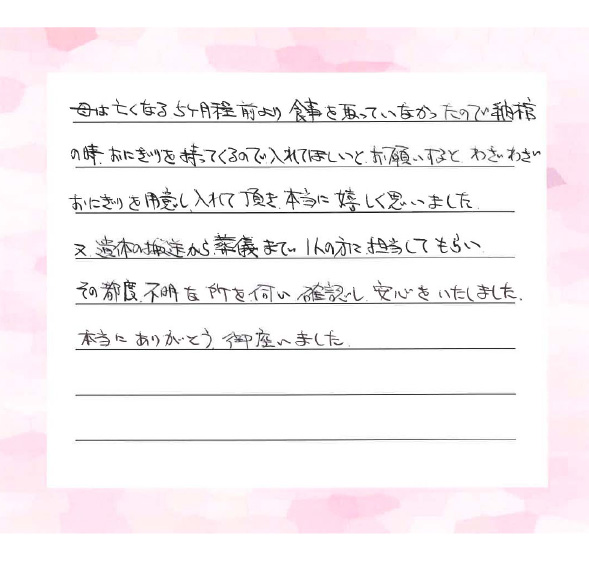 母は亡くなる5ケ月程前より食事を取っていなかったので納棺
の時、おにぎりを持ってくるので入れてほしいとお願いするとわざわざ
おにぎりを用意し、入れて頂き、本当に嬉しく思いました。
又、遺体の搬送から葬儀まで、1人の方に担当してもらい
その都度、不明な所を伺い確認し、安心をいたしました。
本当にありがとう御座いました。